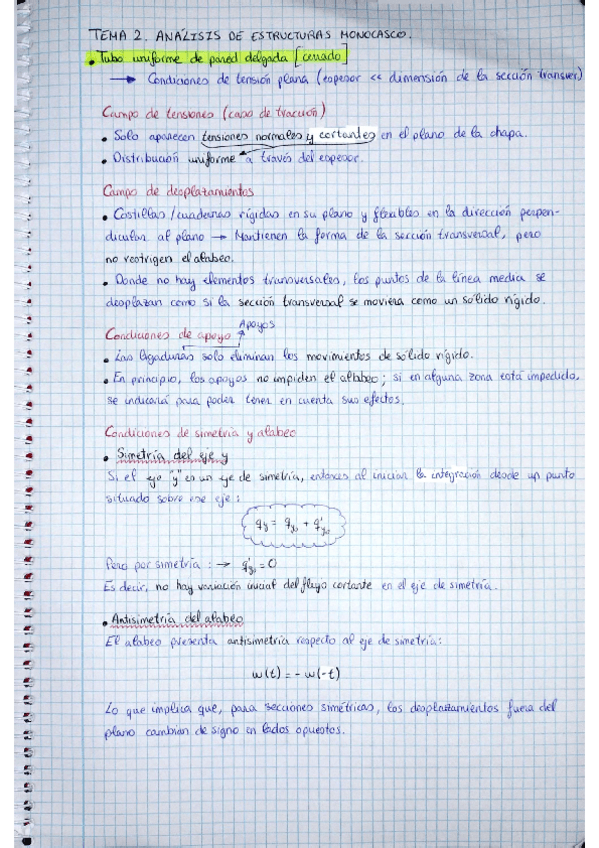 TEMA 2. ANÁLISIS DE ESTRUCTURAS MONOCASCO.
• Tubo uniforme de pared delgada [cerrado]
→ Condiciones de tensión plana (espesor << dimensión de la sección transver)
Campo de tensiones (caso de tracción)
• Solo aparecen tensiones normales y cortantes en el plano de la chapa.
• Distribución uniforme a través del espesor.
Campo de desplazamientos
• Costillas / cuadernas rígidas en su plano y flexibles en la dirección perpen-
dicular al plano → Mantienen la forma de la sección transversal, pero
no restrigen el alabeo.
• Donde no hay elementos transversales, los puntos de la línea media se
desplazan como si la sección transversal se moviera como un sólido rígido.
Apoyos
Condiciones de apoyo
• Las ligaduras solo eliminan los movimientos de sólido rígido.
• En principio, los apoyos no impiden el alabeo; si en alguna zona está impedido,
se indicaría para poder tener en cuenta sus efectos.
Condiciones de simetría y alabeo
• Simetría del eje y
Si el eje "y" es un eje de simetría, entonces al iniciar la integración desde un punto
situado sobre ese eje:
q_y = q_y₀ + q'_y₀
Pero por simetría: → q'_y₀ = 0
Es decir, no hay variación inicial del flujo cortante en el eje de simetría.
• Antisimetría del alabeo
El alabeo presenta antisimetría respecto al eje de simetría:
w(t) = - w(-t)
Lo que implica que, para secciones simétricas, los desplazamientos fuera del
plano cambian de signo en lados opuestos.